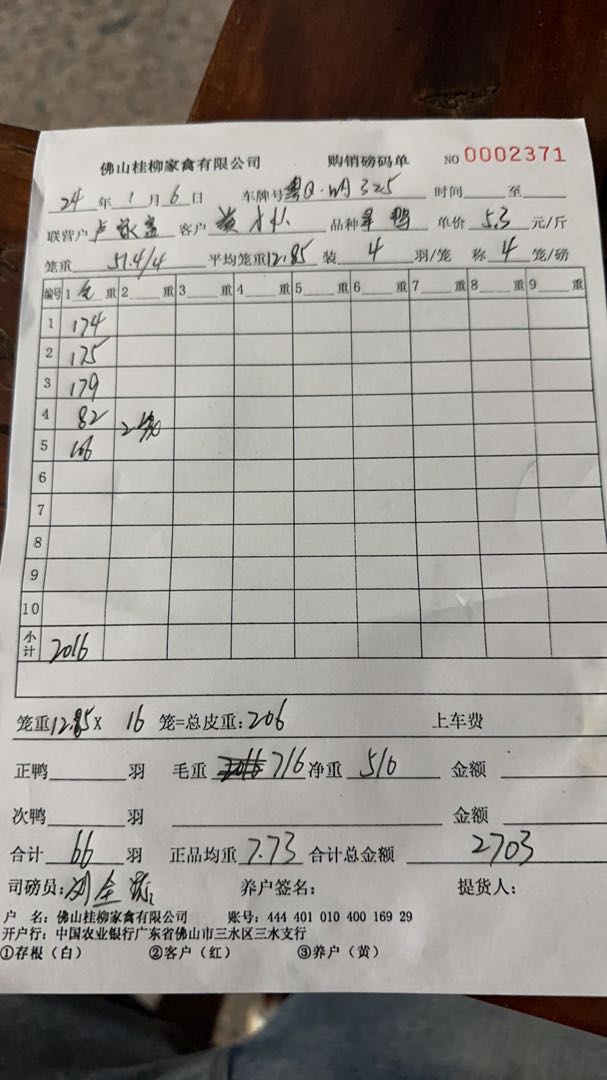 佛山桂柳家禽有限公司 购销磅码单 NO 0002371
24 年 1 月 6 日 车牌号 粤Q· 325 时间 至
联营户 卢 客户 黄 品种 鸭 单价 5.3 元/斤
笼重 51.4/4 平均笼重 12.85 装 4 羽/笼 称 4 笼/磅
编号 1 重 2 重 3 重 4 重 5 重 6 重 7 重 8 重 9 重
1 174
2 175
3 179
4 82
5 106
6
7
8
9
10
小计 2016
笼重 12.85 X 16 笼=总皮重: 206 上车费
正鸭 羽 毛重 2016 716 净重 510 金额
次鸭 羽 金额
合计 66 羽 正品均重 7.73 合计总金额 2703
司磅员: 刘全 养户签名: 提货人:
户 名: 佛山桂柳家禽有限公司 账号: 444 401 010 400 169 29
开户行: 中国农业银行广东省佛山市三水区三水支行
①存根（白） ②客户（红） ③养户（黄）